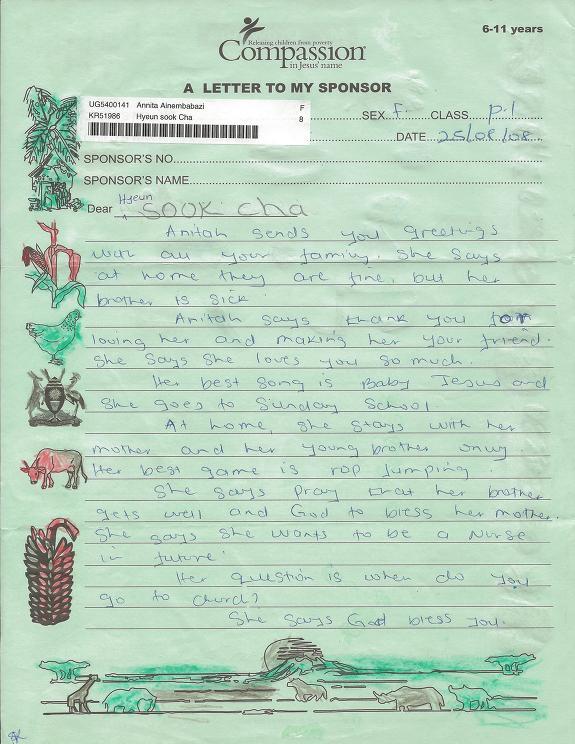 6-11 years
Releasing children from poverty
Compassion
in Jesus' name
A LETTER TO MY SPONSOR
UG5400141 Annita Ainembabazi F
KR51986 Hyeun sook Cha 8
SEX F. CLASS P.1
DATE 25/08/08
SPONSOR'S NO.
SPONSOR'S NAME
Dear Hyeun SOOK Cha
Anitah sends you greetings
with all your family. She says
at home they are fine, but her
brother is sick.
Anitah says thank you for
loving her and making her your friend.
She says she loves you so much.
Her best song is Baby Jesus and
she goes to Sunday School.
At home, she stays with her
mother and her young brother only.
Her best game is rop jumping
She says pray that her brother
gets well and God to bless her mother.
She says she wants to be a Nurse
in future.
Her question is when do you
go to church?
She says God bless you.